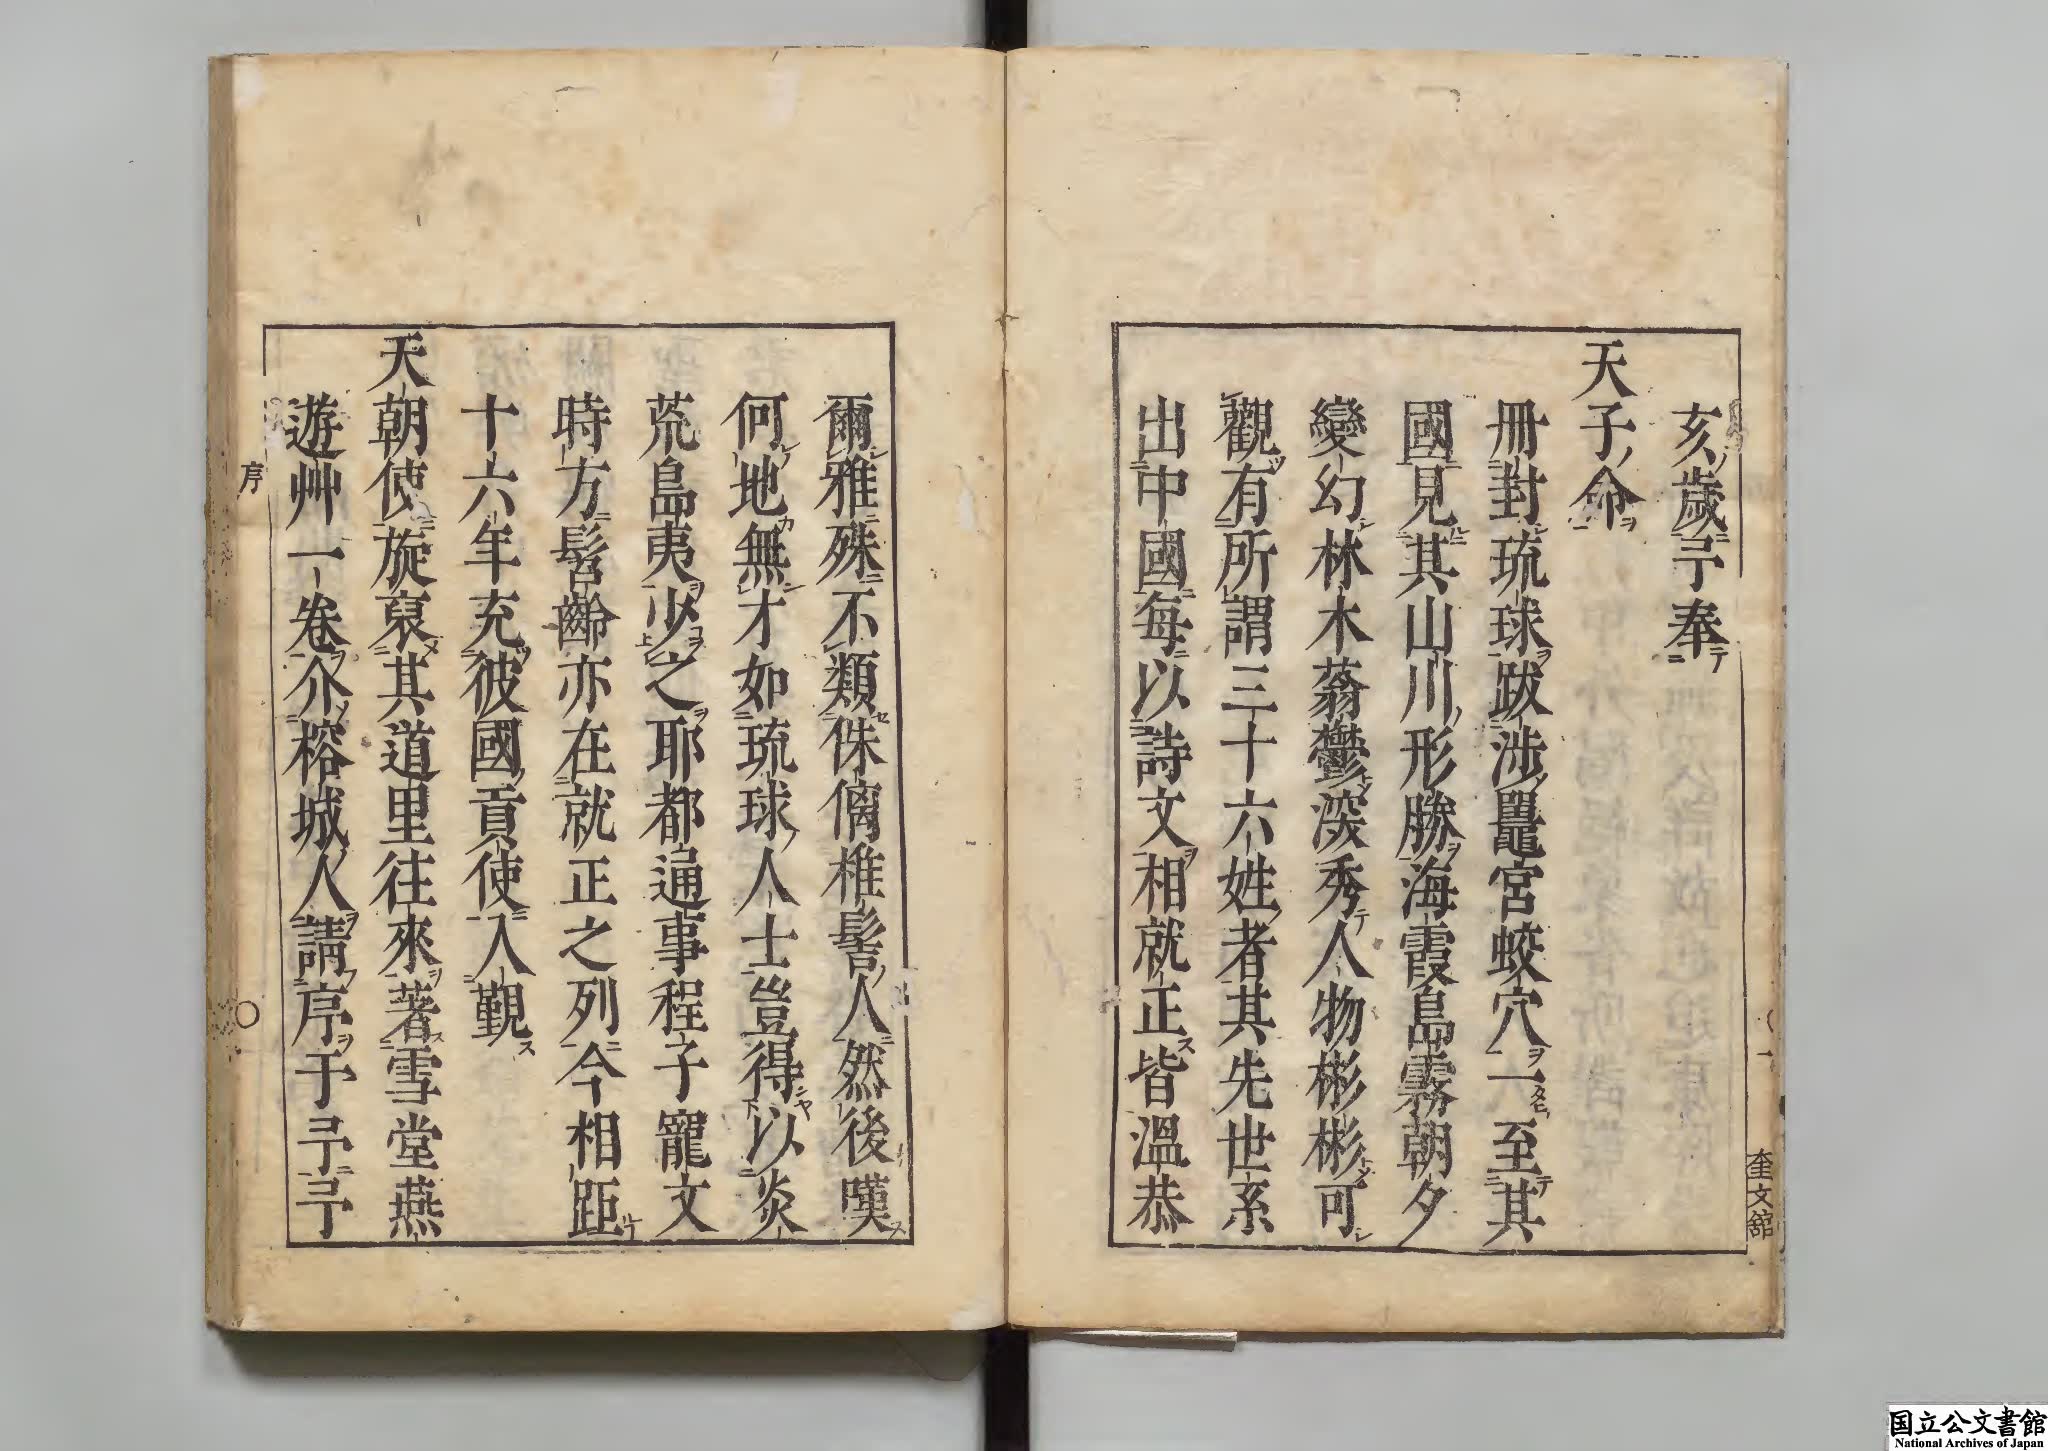 亥歲予奉
天子命
冊封琉球跋涉鼉宮蛟穴一八至其
國見其山川形勝海霞島霧朝夕
變幻林木蓊鬱深秀人物彬彬可
觀有所謂三十六姓者其先世系
出中國每以詩文相就正皆溫恭
奎文館
爾雅殊不類侏㒧椎髻人然後嘆
何地無才如琉球人士豈得以炎
荒島夷少之耶都通事程子寵文
時方髫齡亦在就正之列今相距
十六年充彼國貢使入覲
天朝使旋裒其道里往來著雪堂燕
遊艸一卷介榕城人請序于予予
序
国立公文書館
National Archives of Japan